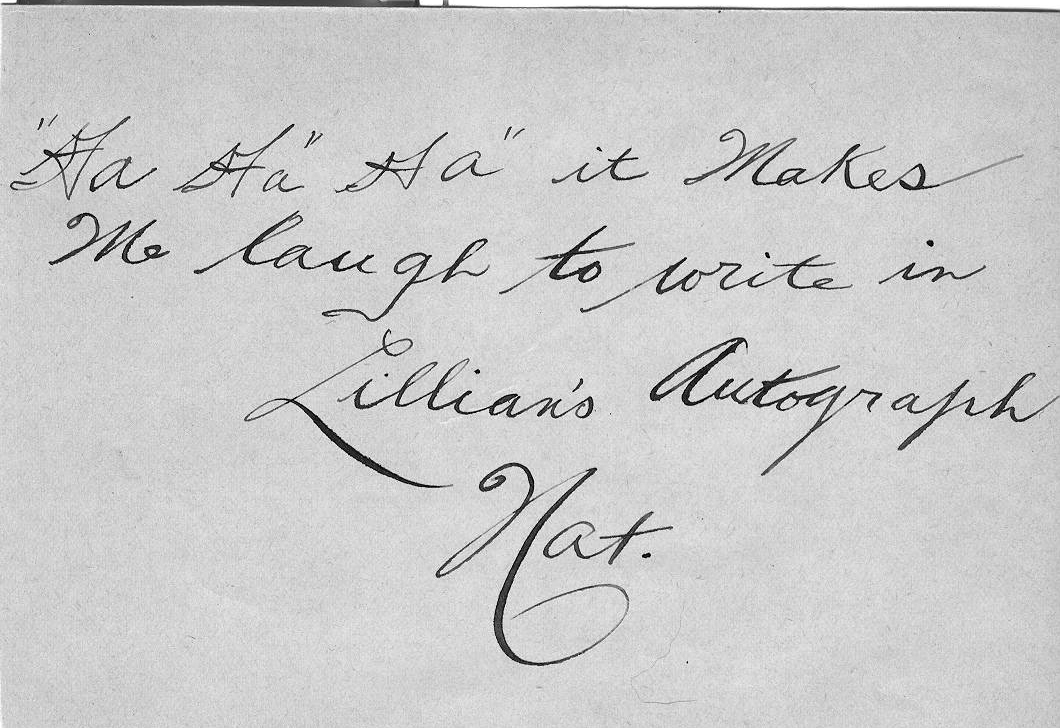 "Ha Ha" Ha" it Makes
Me laugh to write in
Lillian's Autograph
Nat.